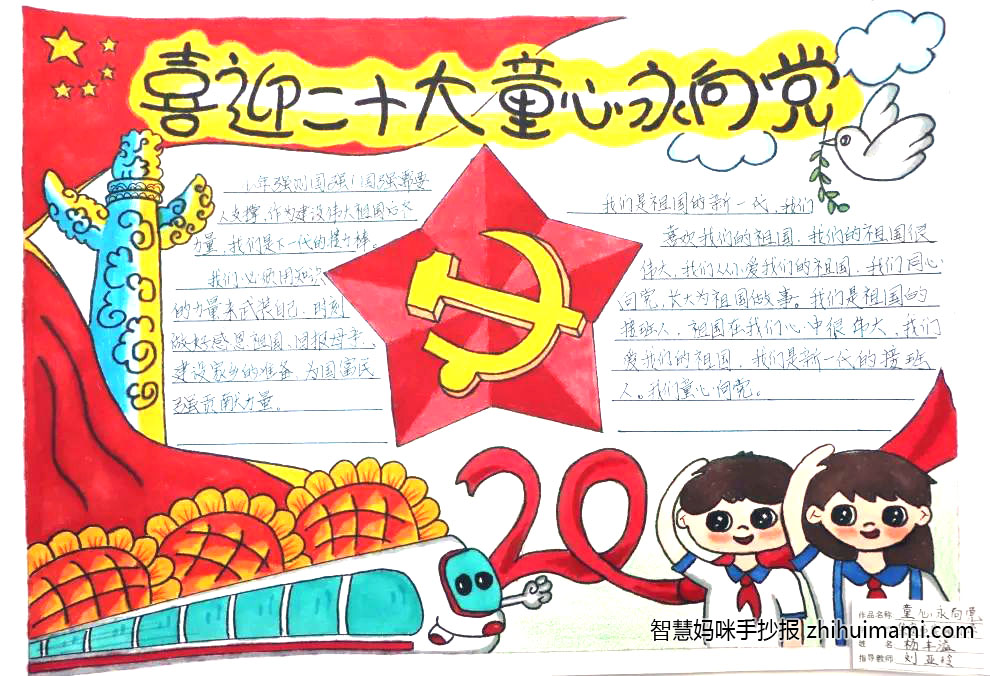 喜迎二十大童心永向党
少年强则国强！国强需要
人支撑，作为建设伟大祖国的
力量，我们是下一代的接力棒。
我们必须用知识
的力量来武装自己，时刻
做好感恩祖国、回报母亲、
建设家乡的准备，为国富民
强贡献力量。
我们是祖国的新一代，我们
喜欢我们的祖国，我们的祖国很
伟大，我们从小爱我们的祖国，我们同心
向党，长大为祖国做事。我们是祖国的
接班人，祖国在我们心中很伟大，我们
爱我们的祖国，我们是新一代的接班
人。我们童心向党。
20
作品名称 童心永向党
智慧妈咪手抄报 | zhihuimami.com
姓 名 杨
指导教师 刘亚